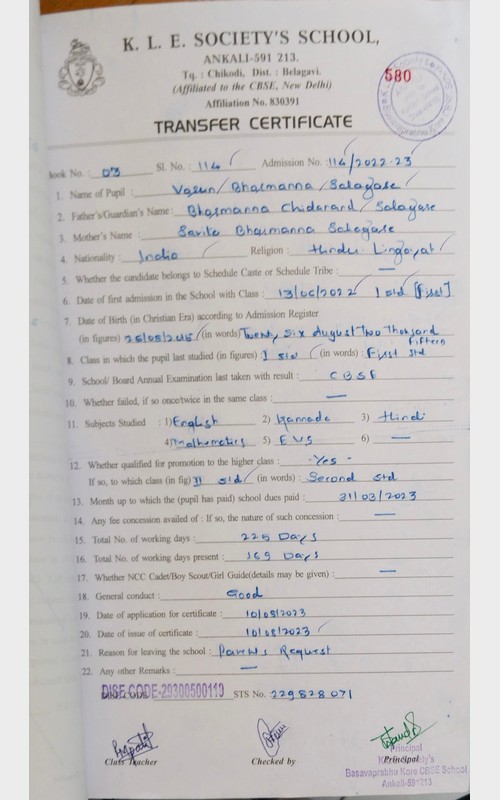 K. L. E. SOCIETY'S SCHOOL,
ANKALI-591 213.
Tq. : Chikodi, Dist. : Belagavi.
580
(Affiliated to the CBSE, New Delhi)
Affiliation No. 830391
TRANSFER CERTIFICATE
Book No. : 03 Sl. No. : 114 Admission No. : 114/2022-23
1. Name of Pupil : Bhasmanna Salagase
2. Father's/Guardian's Name : Bhasmanna Chidanand Salagase
3. Mother's Name : Savita Bhasmanna Salagase
4. Nationality : India Religion : Hindu Lingayat
5. Whether the candidate belongs to Schedule Caste or Schedule Tribe : —
6. Date of first admission in the School with Class : 13/06/2022 I std [First]
7. Date of Birth (in Christian Era) according to Admission Register
(in figures) 26/08/2015 (in words) Twenty Six August Two Thousand
Fifteen
8. Class in which the pupil last studied (in figures) I std (in words) : First Std
9. School/ Board Annual Examination last taken with result : CBSE
10. Whether failed, if so once/twice in the same class : —
11. Subjects Studied : 1) English 2) Kannada 3) Hindi
4) Mathematics 5) EVS 6) —
12. Whether qualified for promotion to the higher class : -Yes-
If so, to which class (in fig) II std (in words) : Second std
13. Month up to which the (pupil has paid) school dues paid : 31/03/2023
14. Any fee concession availed of : If so, the nature of such concession : —
15. Total No. of working days : 225 Days
16. Total No. of working days present : 169 Days
17. Whether NCC Cadet/Boy Scout/Girl Guide(details may be given) : —
18. General conduct : Good
19. Date of application for certificate : 10/08/2023
20. Date of issue of certificate : 10/08/2023
21. Reason for leaving the school : Parents Request
22. Any other Remarks : —
DISE CODE-29300500110 STS No. 229828071
Class Teacher Checked by Principal
Principal
Basavaprabhu Kore CBSE School
Ankali-591213